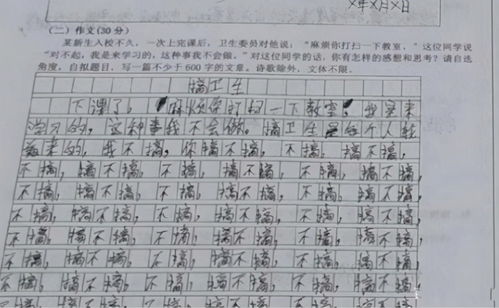 X年X月X日
(二) 作文(30分)
某新生入校不久,一次上完课后,卫生委员对他说:“麻烦你打扫一下教室,”这位同学说
“对不起,我是来学习的,这种事我不会做。”对这位同学的话,你有怎样的感想和思考?请自选
角度,自拟题目,写一篇不少于600字的文章。诗歌除外,文体不限。
搞卫生
下课了,麻烦你打扫一下教室,我是来
学习的,这种事我不会做。搞卫生是每个人都
要来的,我不搞,你搞不搞,不搞,搞不搞,
不搞,搞不搞,不搞,搞不搞,不搞,搞不搞,
不搞,搞不搞,不搞,搞不搞,不搞,搞不搞,
不搞,搞不搞,不搞,搞不搞,不搞,搞不搞,
不搞,搞不搞,不搞,搞不搞,不搞,搞不搞,
不搞,搞不搞,不搞,搞不搞,不搞,搞不搞,
不搞,搞不搞,不搞,搞不搞,不搞,搞不搞